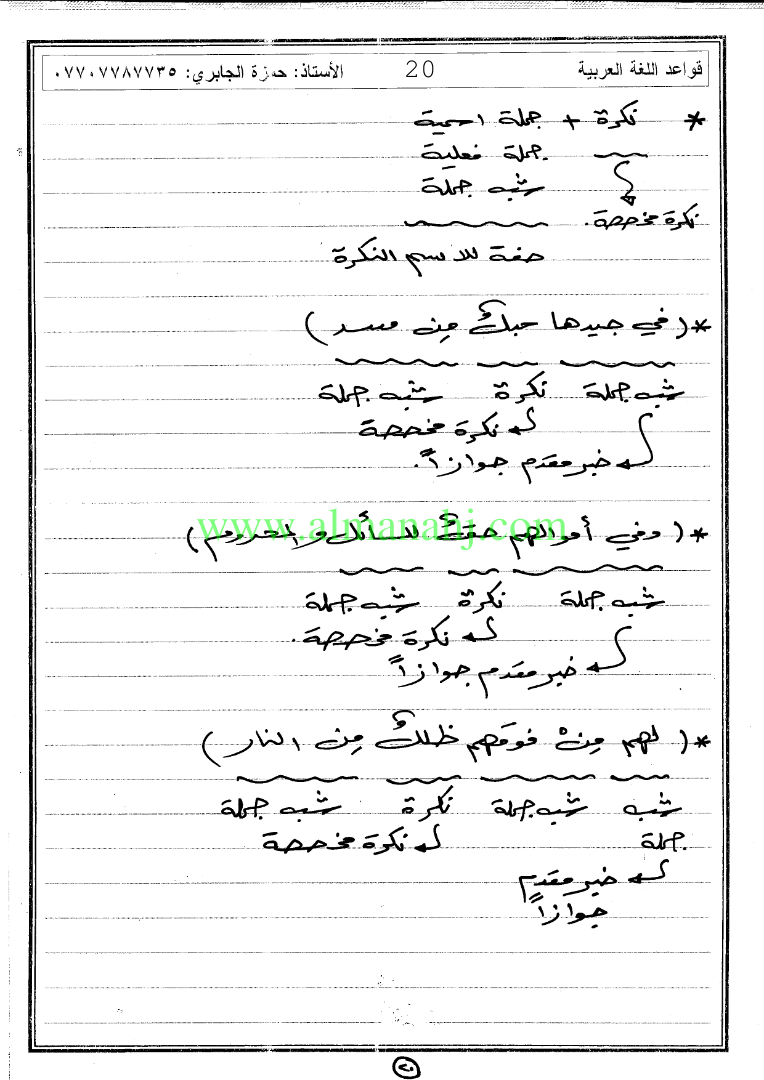 قواعد اللغة العربية 20 الأستاذ: حمزة الجابري: ٠٧٧٠٧٧٨٧٧٣٥
* نكرة + جملة اسمية
جملة فعلية
شبه جملة
نكرة مخصصة.
صفة للاسم النكرة
* ( في جيدها حبلٌ مِن مسد )
شبه جملة نكرة شبه جملة
نكرة مخصصة
خبر مقدم جوازاً.
* ( وفي أموالهم حقٌ للسائل والمحروم )
www.almanahj.com
شبه جملة نكرة شبه جملة
نكرة مخصصة.
خبر مقدم جوازاً
* ( لهم مِنْ فوقهم ظللٌ مِن النار )
شبه شبه جملة نكرة شبه جملة
جملة نكرة مخصصة
خبر مقدم
جوازاً
٢٠